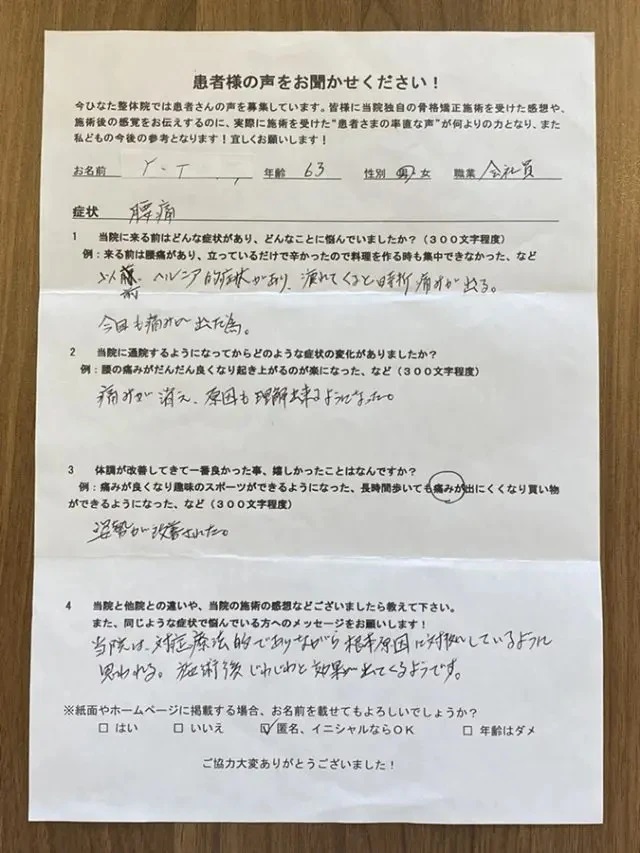 患者様の声をお聞かせください！
今ひなた整体院では患者さんの声を募集しています。皆様に当院独自の骨格矯正施術を受けた感想や、
施術後の感覚をお伝えするのに、実際に施術を受けた"患者さまの率直な声"が何よりの力となり、また
私どもの今後の参考となります！宜しくお願いします！
お名前 Y-T 年齢 63 性別 男・女 職業 会社員
症状 腰痛
1 当院に来る前はどんな症状があり、どんなことに悩んでいましたか？（300文字程度）
例：来る前は腰痛があり、立っているだけで辛かったので料理を作る時も集中できなかった、など
以前、ヘルニア的症状があり、疲れてくると時折痛みが出る。
今回も痛みが出た為。
2 当院に通院するようになってからどのような症状の変化がありましたか？
例：腰の痛みがだんだん良くなり起き上がるのが楽になった、など（300文字程度）
痛みが消え、原因も理解出来るようになった。
3 体調が改善してきて一番良かった事、嬉しかったことはなんですか？
例：痛みが良くなり趣味のスポーツができるようになった、長時間歩いても痛みが出にくくなり買い物
ができるようになった、など（300文字程度）
姿勢が改善された。
4 当院と他院との違いや、当院の施術の感想などございましたら教えて下さい。
また、同じような症状で悩んでいる方へのメッセージをお願いします！
当院は、対症療法的でありながら根本原因に対処しているように
思われる。施術後じわじわと効果が出てくるようです。
※紙面やホームページに掲載する場合、お名前を載せてもよろしいでしょうか？
□ はい □ いいえ ☑ 匿名、イニシャルならOK □ 年齢はダメ
ご協力大変ありがとうございました！